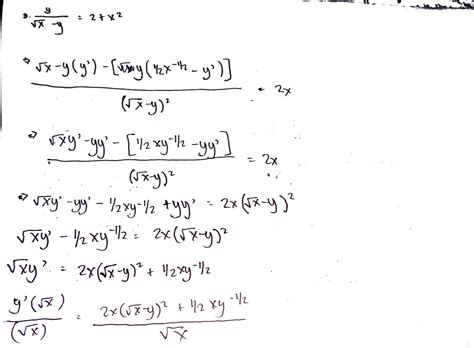 3. y/(√x - y) = 2 + x²
⇒ (√x - y(y') - [y(1/2x^-1/2 - y')])/(√x-y)² = 2x
⇒ (√xy' - yy' - [1/2xy^-1/2 - yy'])/(√x-y)² = 2x
⇒ √xy' - yy' - 1/2xy-1/2 + yy' = 2x(√x-y)²
√xy' - 1/2xy^-1/2 = 2x(√x-y)²
√xy' = 2x(√x-y)² + 1/2xy-1/2
y'(√x)/(√x) = (2x(√x-y)² + 1/2xy^-1/2)/√x